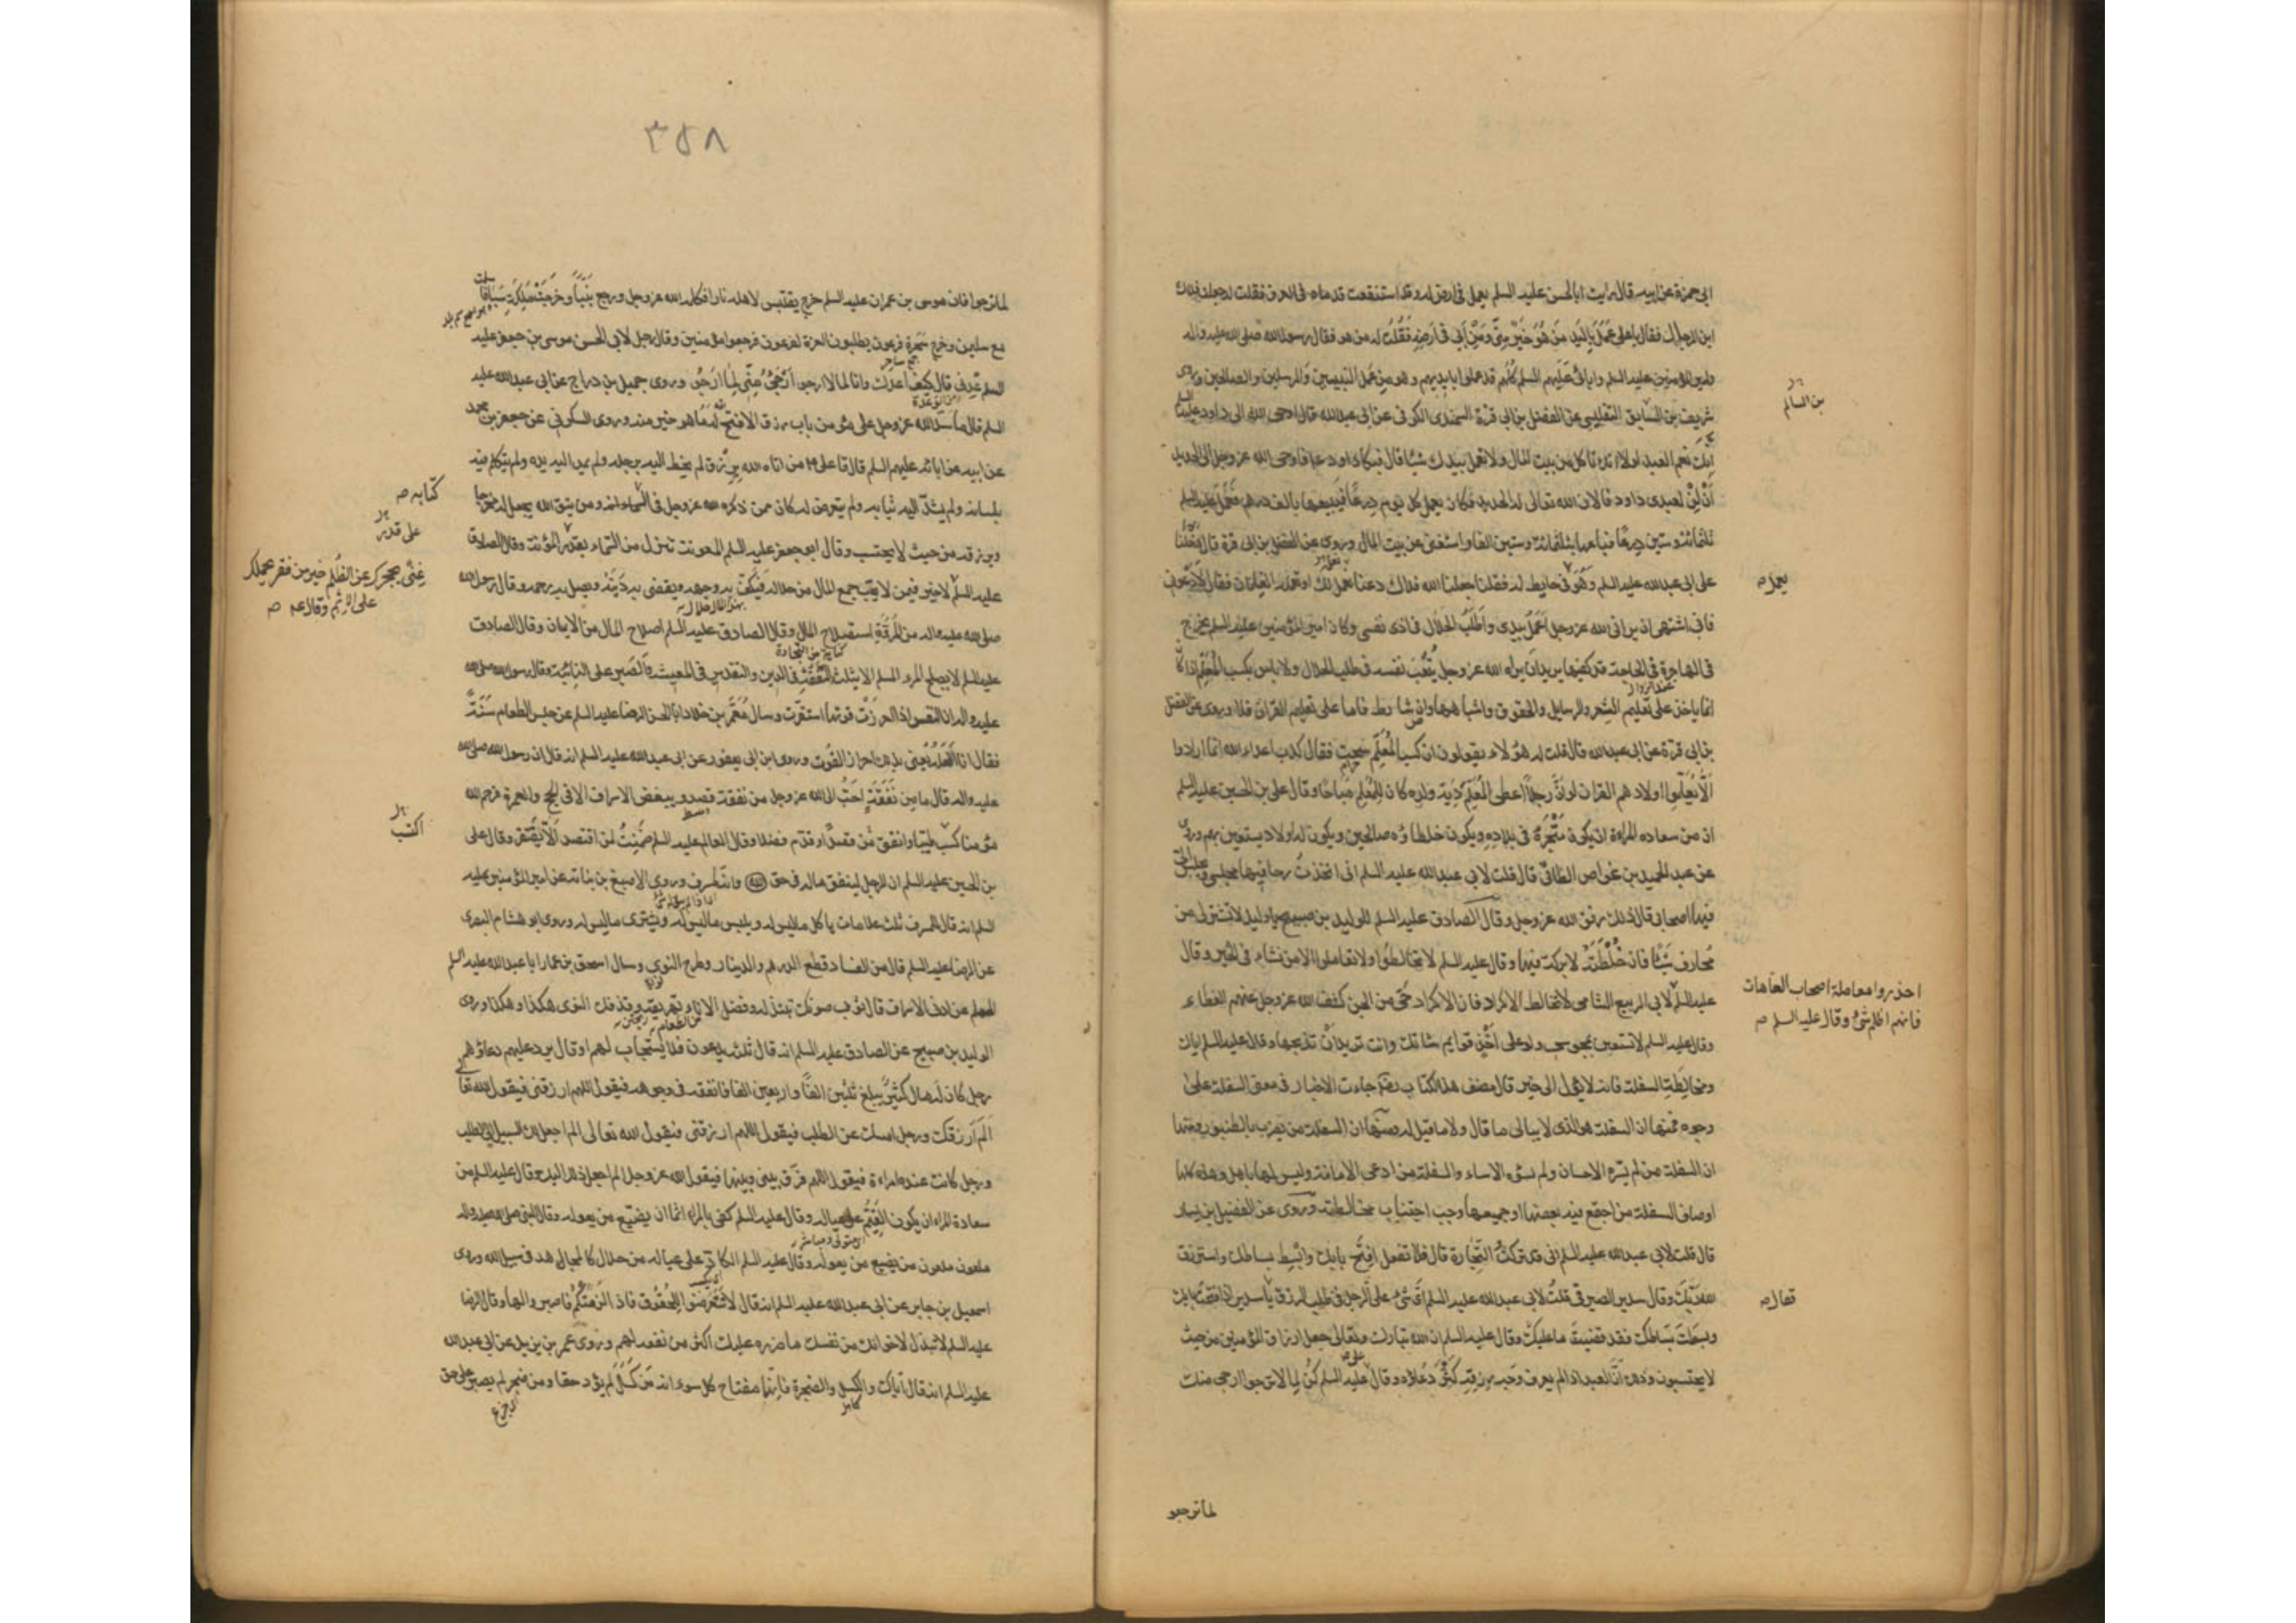 ابي حمزة عن ابيه قال رايت ابا الحسن عليه السلم يعمل في ارض له وقد استنقعت قدماه في العرق فقلت له جعلت فداك
اين الرجال فقال يا على عَمَلَ باليد من هو خير منّى ومن ابى في ارضه فقلت له من هو فقال رسول الله صلى الله عليه واله
وامير المؤمنين عليه السلم واباى عليهم السلم كلهم قد عملوا بايديهم وهو من عمل النبيين والمرسلين والصالحين وروى
شريف بن السابق التفليسى عن الفضل بن ابى قرة السمندى الكوفى عن ابى عبدالله قال اوحى الله الى داود عليه السلم
انك نعم العبد لولا انك تاكل من بيت المال ولا تعمل بيدك شيئا قال فبكى داود ع فاوحى الله عز وجل الى الحديد
أن لِنْ لعبدى داود فالان الله تعالى له الحديد فكان يعمل كل يوم درعًا فيبيعها بالف درهم فعمل عليه السلم
ثلثمائة وستين درعًا فباعها بثلثمائة وستين الفا واستغنى عن بيت المال وروى عن الفضل بن ابى قرة قال دخلنا
على ابى عبدالله عليه السلم وهو فى حايط له فقلنا جعلنا الله فداك دعنا نعمل لك او تعمله الغلمان فقال لا دعونى
فانى اشتهى ان يرانى الله عز وجل اعمل بيدى واطلب الحلال فى اذى نفسى وكان امير المؤمنين عليه السلم يخرج
فى الهاجرة فى الحاجة قد كفيها يريد ان يراه الله عز وجل يتعب نفسه فى طلب الحلال ولا باس بكسب المعلم اذا كان
عند الزوال
انما ياخذ على تعليم الشعر والرسايل والحقوق واشباهها وان شارط فاما على تعليم القران فلا وروى عن الفضل
بن ابى قرة عن ابى عبدالله قال قلت له هؤلاء يقولون ان كسب المعلم سحت فقال كذب اعداء الله انما ارادوا
الّا يعلّموا اولادهم القران لو ان رجلا اعطى المعلم دية ولده كان للمعلم مباحًا وقال على بن الحسين عليه السلم
ان من سعادة المرءة ان يكون متجره فى بلاده ويكون خلطاؤه صالحين ويكون له اولاد يستعين بهم وروى
عن عبد الحميد بن عواض الطائى قال قلت لابى عبدالله عليه السلم انى اتخذت رحا فيها مجلسى ويجلس الىّ
فيها اصحابى قال ذلك رفق الله عز وجل وقال الصادق عليه السلم للوليد بن صبيح يا وليد لا تشتر لى من
محارف شيئًا فان خلطته لا بركة فيها وقال عليه السلم لا تخالطوا ولا تعاملوا الا من نشاء فى الخير وقال
عليه السلم لابى الربيع الشامى لا تخالط الاكراد فان الاكراد حىّ من الجن كشف الله عز وجل عنهم الغطاء
وقال عليه السلم لا تستعين بمجوسى ولو على اخذ قوايم شاتك وانت تريد ان تذبحها وقال عليه السلم اياك
ومخالطة السفلة فانه لا يؤل الى خير قال مصنف هذا الكتاب رحمه جاءت الاخبار فى معنى السفلة على
وجوه فمنها ان السفلة هو الذى لا يبالى ما قال ولا ما قيل له ومنها ان السفلة من يضرب بالطنبور ومنها
ان السفلة من لم يسره الاحسان ولم تسؤه الاساء والسفلة من ادعى الامامة وليس لها باهل وهذه كلها
اوصاف السفلة من اجتمع فيه بعضها او جميعها وجب اجتناب مخالطته وروى عن الفضيل بن يسار
قال قلت لابى عبدالله عليه السلم انى قد تركت التجارة قال فلا تفعل افتح بابك وابسط بساطك واسترزق
الله ربك وقال سدير الصيرفى قلت لابى عبدالله عليه السلم اى شئ على الرجل فى طلب الرزق يا سدير اذا فتحت بابك
وبسطت بساطك فقد قضيت ما عليك وقال عليه السلم ان الله تبارك وتعالى جعل ارزاق المؤمنين من حيث
لا يحتسبون وذلك ان العبد اذا لم يعرف وجه رزقه كثر دعاؤه وقال على عليه السلم كن لما لا ترجوا ارجى منك
لما ترجو
بن السالم
يعمل
احذروا معاملة اصحاب العاهات
فانهم اظلم شئ وقال عليه السلم
فقال
٣٥٨
لما ترجوا فان موسى بن عمران عليه السلم خرج يقتبس لاهله نارا فكلمه الله عز وجل ورجع نبيّا وخرجت ملكة سبا فاسلمت
مع سليمن وخرج سحرة فرعون يطلبون العزة لفرعون فرجعوا مؤمنين وقال رجل لابى الحسن موسى بن جعفر عليه
السلم عِدنى قال كيف اعدك وانا لما لا ارجو ارجى منّى لما ارجو وروى جميل بن دراج عن ابى عبدالله عليه
السلم قال ما سدّ الله عز وجل على مؤمن باب رزق الا فتح له ما هو خير منه وروى السكونى عن جعفر بن محمد
عن ابيه عن ابائه عليهم السلم قال قال على ع من اتاه الله برزق لم يخط اليه برجله ولم يمد اليه يده ولم يتكلم فيه
بلسانه ولم يشدّ اليه ثيابه ولم يتعرض له كان ممن ذكره الله عز وجل فى كتابه ومن يتق الله يجعل له مخرجا
ويرزقه من حيث لا يحتسب وقال ابو جعفر عليه السلم المعونة تنزل من السماء بقدر المؤنة وقال الصادق
عليه السلم لا خير فيمن لا يحب جمع المال من حلاله فيكف به وجهه ويقضى به دينه ويصل به رحمه وقال رسول الله
صلى الله عليه واله من المروة استصلاح المال وقال الصادق عليه السلم اصلاح المال من الايمان وقال الصادق
عليه السلم لا يصلح المرء المسلم الا بثلث التفقه فى الدين والتقدير فى المعيشة والصبر على النائبة وقال رسول الله صلى الله
عليه واله ان النفس اذا احرزت قوتها استقرت وسال معمر بن خلاد ابا الحسن الرضا عليه السلم عن حبس الطعام سنة
فقال انا افعله يعنى بذلك احراز القوت وروى ابن ابى يعفور عن ابى عبدالله عليه السلم انه قال ان رسول الله صلى الله
عليه واله قال ما من نفقة احب الى الله عز وجل من نفقة قصد ويبغض الاسراف الا فى الحج والعمرة فرحم الله
مؤمنا كسب طيبًا وانفق من قصد او قدّم فضلا وقال العالم عليه السلم ضمنت لمن اقتصد الّا يفتقر وقال على
بن الحسين عليه السلم ان الرجل لينفق ماله فى حق وانه لمسرف وروى الاصبغ بن نباته عن امير المؤمنين عليه
السلم انه قال للمسرف ثلث علامات ياكل ما ليس له ويلبس ما ليس له ويشترى ما ليس له وروى ابو هشام البصرى
عن الرضا عليه السلم قال من الفساد قطع الدرهم والدينار وطرح النوى وسال اسحق بن عمار ابا عبدالله عليه السلم
عن ادنى الاسراف قال ثوب صونك تبتذله وفضل الاناء تهريقه وقذفك النوى هكذا وهكذا وروى
الوليد بن صبيح عن الصادق عليه السلم انه قال ثلثة يدعون فلا يستجاب لهم او قال يرد عليهم دعاؤهم
رجل كان له مال كثير يبلغ ثلثين الفًا او اربعين الفا فانفقه فى وجوهه فيقول اللهم ارزقنى فيقول الله تعالى
الم ارزقك ورجل امسك عن الطلب فيقول اللهم ارزقنى فيقول الله تعالى الم اجعل لك السبيل الى الطلب
ورجل كانت عنده امراءة فيقول اللهم فرّق بينى وبينها فيقول الله عز وجل الم اجعل ذلك اليك وقال عليه السلم من
سعادة المرء ان يكون القيم على عياله وقال عليه السلم كفى بالمرء اثما ان يضيّع من يعوله وقال النبى صلى الله عليه واله
ملعون ملعون من يضيع من يعوله وقال عليه السلم الكاد على عياله من حلال كالمجاهد فى سبيل الله وروى
اسمعيل بن جابر عن ابى عبدالله عليه السلم انه قال لا تتعرضوا للحقوق فاذا لزمتكم فاصبروا لها وقال الرضا
عليه السلم لا تبذل لاخوانك من نفسك ما ضرره عليك اكثر من نفعه لهم وروى عمر بن يزيد عن ابى عبدالله
عليه السلم انه قال اياك والكسل والضجرة فانها مفتاح كل سوء انه من كسل لم يؤد حقا ومن ضجر لم يصبر على حق
كتابه
على قدر
غِنًى يحجزك عن الظلم خير من فقر يحملك
على الاثم وقال ع
اكتسب